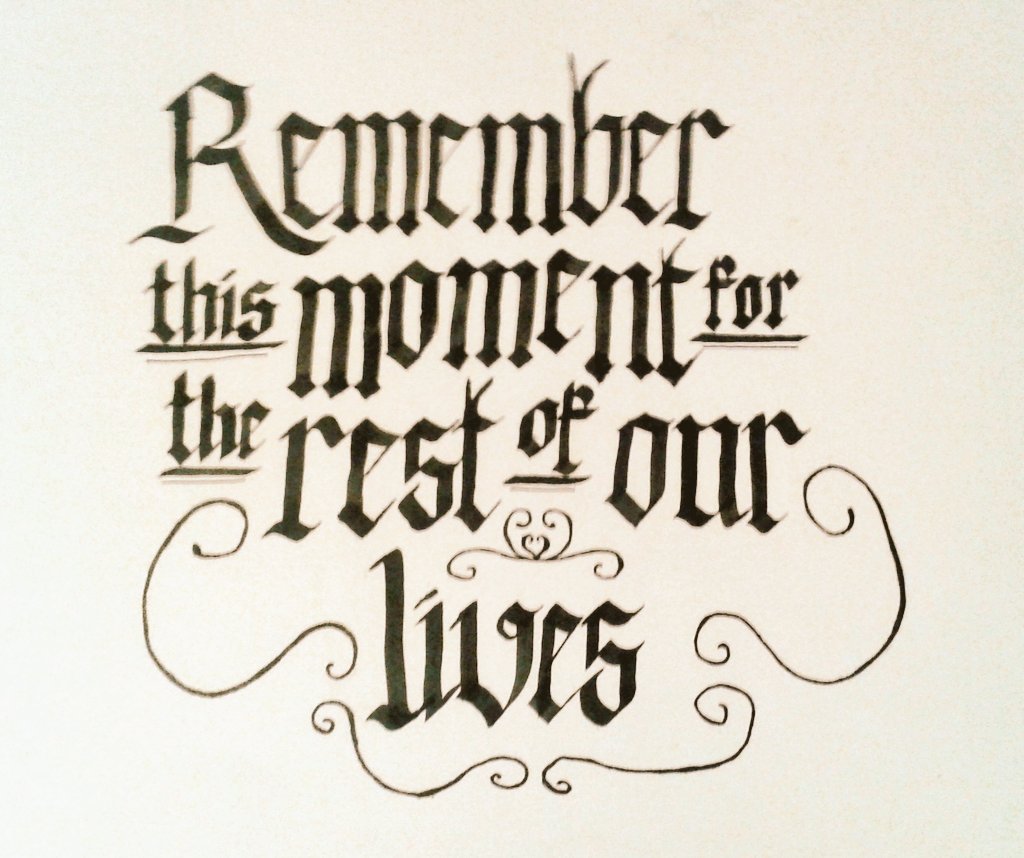 Remember
this moment for
the rest of our
lives